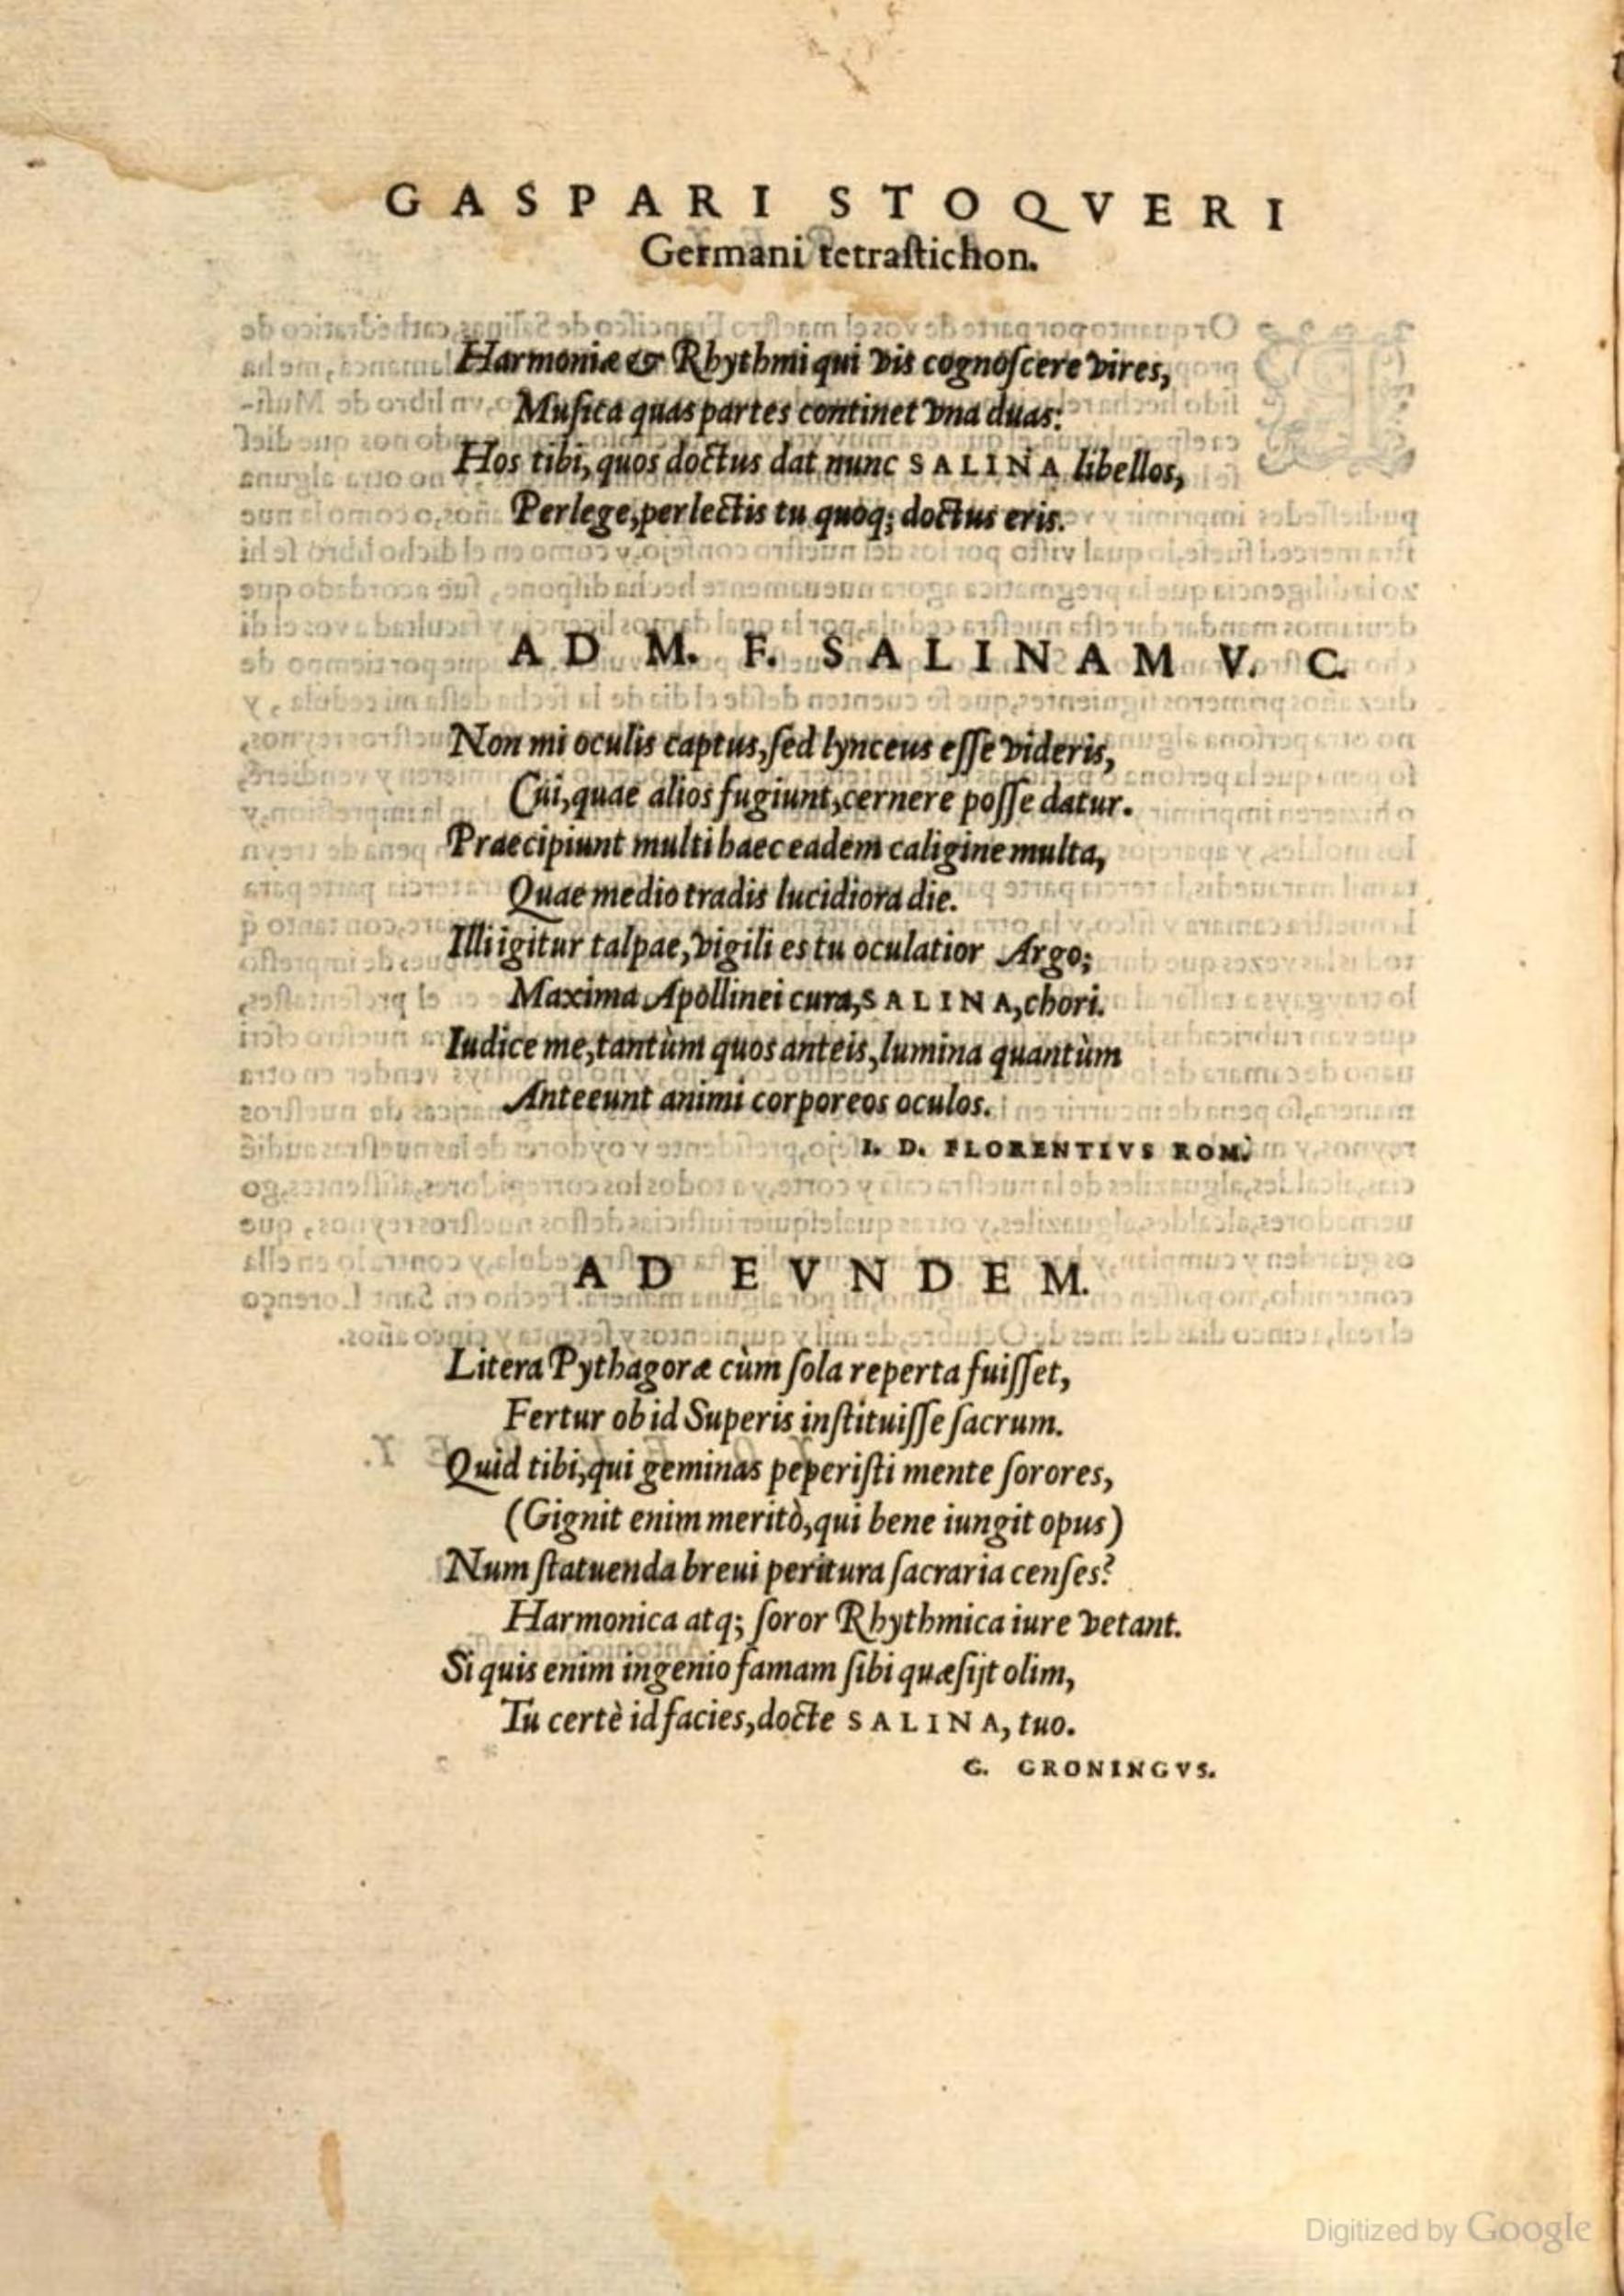 GASPARI STOQVERI
Germani tetrastichon.
Harmoniæ & Rhythmi qui vis cognoscere vires,
Musica quas partes continet vna duas:
Hos tibi, quos doctus dat nunc SALINA libellos,
Perlege, perlectis tu quoq; doctus eris.
AD M. F. SALINAM V. C.
Non mi oculis captus, sed lynceus esse videris,
Cui, quae alios fugiunt, cernere posse datur.
Praecipiunt multi haec eadem caligine multa,
Quae medio tradis lucidiora die.
Illi igitur talpae, vigili es tu oculatior Argo;
Maxima Apollinei cura, SALINA, chori.
Iudice me, tantùm quos anteis, lumina quantùm
Anteeunt animi corporeos oculos.
I. D. FLORENTIVS ROM.
AD EVNDEM.
Litera Pythagoræ cùm sola reperta fuisset,
Fertur ob id Superis instituisse sacrum.
Quid tibi, qui geminas peperisti mente sorores,
(Gignit enim meritò, qui bene iungit opus)
Num statuenda breui peritura sacraria censes?
Harmonica atq; soror Rhythmica iure vetant.
Si quis enim ingenio famam sibi quæsijt olim,
Tu certè id facies, docte SALINA, tuo.
G. GRONINGVS.
Digitized by Google